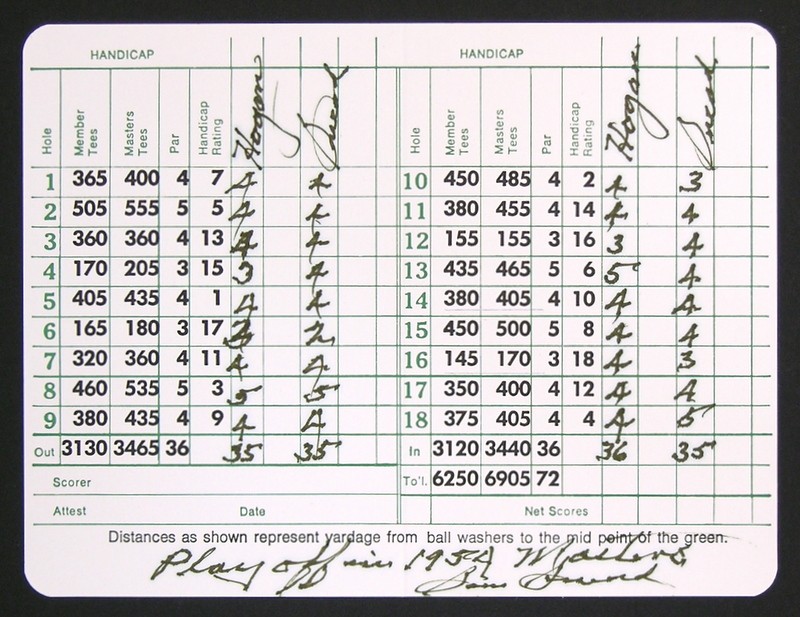 HANDICAP HANDICAP
Hole Member Tees Masters Tees Par Handicap Rating Hogan Snead Hole Member Tees Masters Tees Par Handicap Rating Hogan Snead
1 365 400 4 7 4 4 10 450 485 4 2 4 3
2 505 555 5 5 4 4 11 380 455 4 14 4 4
3 360 360 4 13 4 4 12 155 155 3 16 3 4
4 170 205 3 15 3 4 13 435 465 5 6 5 4
5 405 435 4 1 4 4 14 380 405 4 10 4 4
6 165 180 3 17 3 2 15 450 500 5 8 4 4
7 320 360 4 11 4 4 16 145 170 3 18 4 3
8 460 535 5 3 5 5 17 350 400 4 12 4 4
9 380 435 4 9 4 4 18 375 405 4 4 4 5
Out 3130 3465 36 35 35 In 3120 3440 36 36 35
Scorer To'l. 6250 6905 72
Attest Date Net Scores
Distances as shown represent yardage from ball washers to the mid point of the green.
Play off in 1954 Masters
Sam Snead